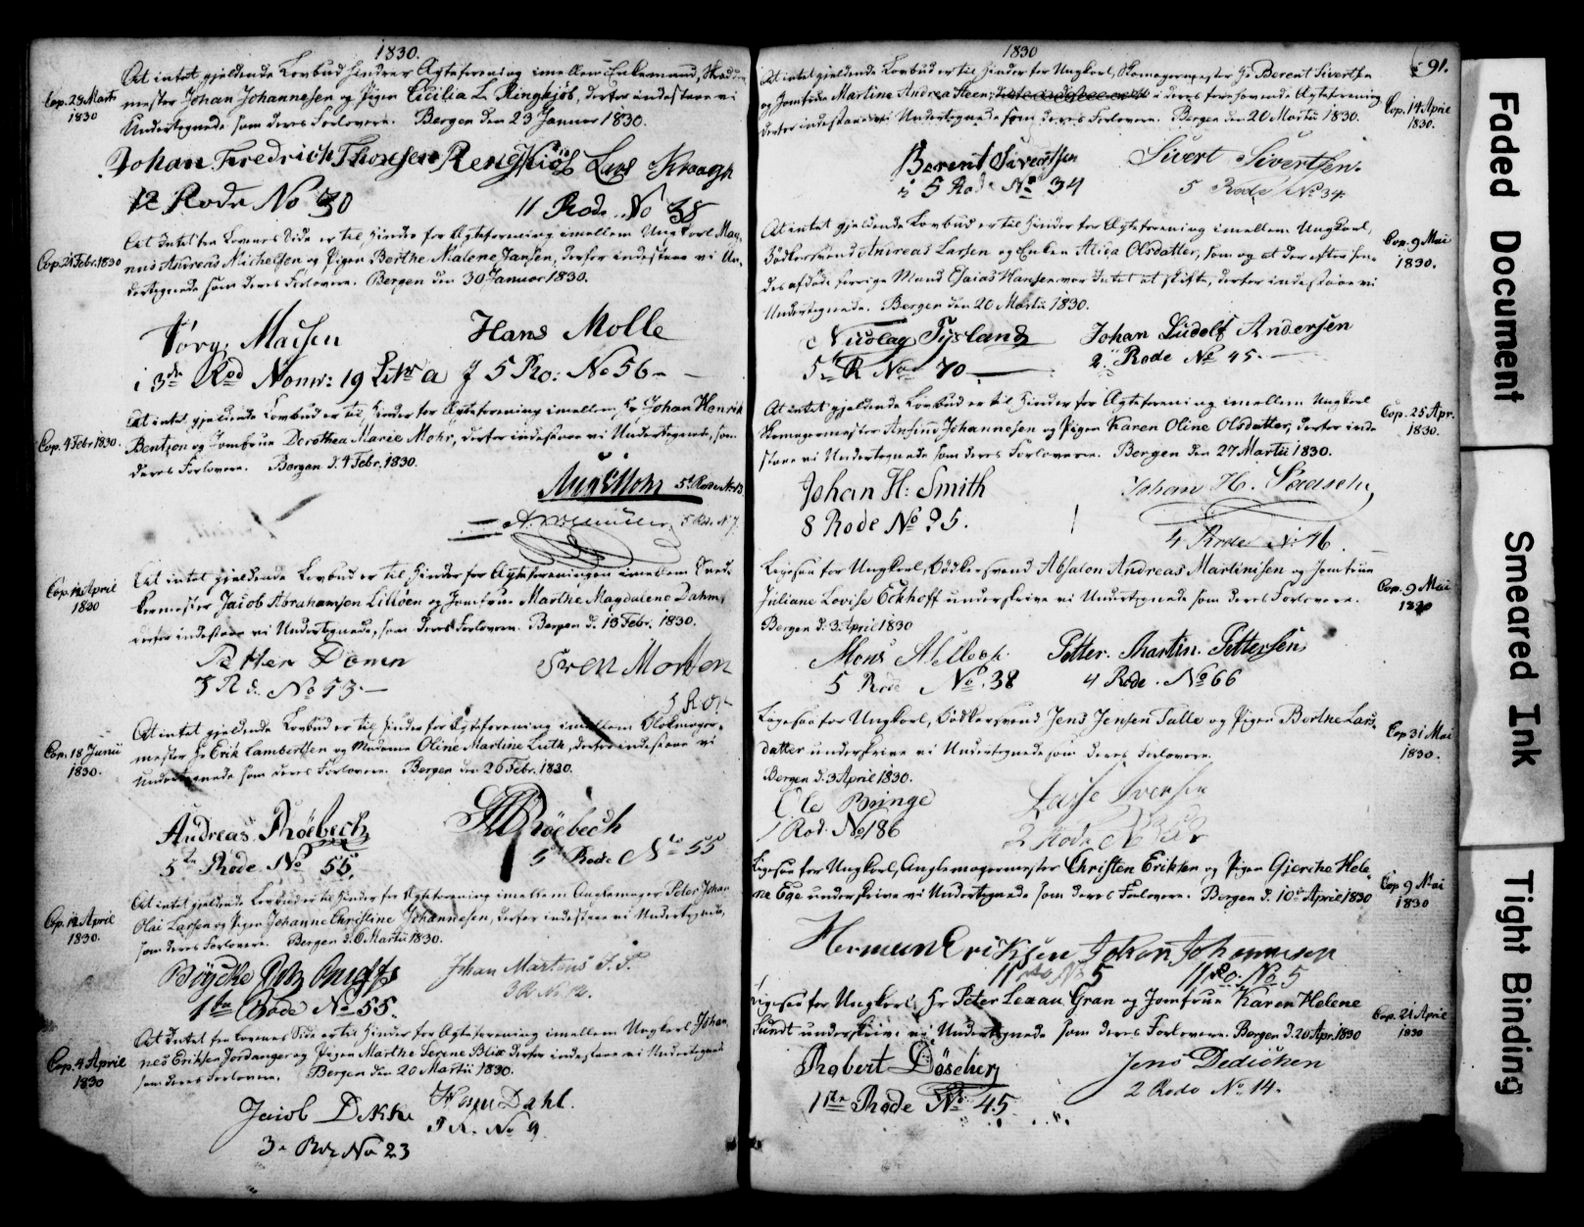 1830.
Cop. 28 Marti 1830
At intet gjeldende Lovbud hindrer Ægteforening imellem Enkemand,
mester Johan Johannesen og Pigen Cicilia L. Ringkjøb, derfor indestaae vi
Undertegnede som deres Forlovere. Bergen den 23 Januar 1830.
Johan Fredrich Thoresen Rengkiøb Lars Kroagh
12 Rode No 30 11 Rode No 38
Cop. 21 Febr. 1830
At Intet fra Lovens Side er til Hinder for Ægteforening imellem Ungkarl Mag-
nus Andreas Michelsen og Pigen Berthe Malene Jansen, derfor indestaae vi Un-
dertegnede som deres Forlovere. Bergen den 30 Januar 1830.
Jørg: Madsen Hans Molle
i 3de Rod Nomr: 19 Litr a 5 Ro: No 56
Cop. 4 Febr 1830.
At intet gjeldende Lovbud er til Hinder for Ægteforening imellem Hr Johan Henrik
Bentzon og Jomfrue Dorothea Marie Mohr, derfor indestaae vi Undertegnede, som
deres Forlovere. Bergen d. 4 Febr. 1830.
Aug: Mohr 5te Rode No 13
Cop. 12 April 1830
At intet gjeldende Lovbud er til Hinder for Ægteforeningen imellem Sned-
kermester Jacob Abrahamsen Liliøen og Jomfrue Marthe Magdalene Dahm,
derfor indestaae vi Undertegnede, som deres Forlovere. Bergen d. 13 Febr. 1830.
Petter Dömn Sven Morten
3 Rd. No 53
Cop. 18 Junii 1830.
At intet gjeldende Lovbud er til Hinder for Ægteforening imellem Blokmager-
mester Hr Erik Lambertsen og Madame Oline Martine Luth, derfor indestaae vi
undertegnede som deres Forlovere. Bergen den 26 Febr. 1830.
Andreas Roebech Röebech
5te Rode No 55. 5te Rode No 55
Cop. 12 April 1830.
At intet gjeldende Lovbud er til Hinder for Ægteforening imellem Anglemager Peter Johan
Olai Larsen og Pigen Johanne Christine Johannesen, derfor indestaae vi Undertegnede,
som deres Forlovere. Bergen d. 6 Martii 1830.
Johan Martens
1te Rode No 55. 3 R No 12.
Cop. 4 April 1830
At Intet fra Lovens Side er til Hinder for Ægteforening imellem Ungkarl Johan-
nes Eriksen Jordanger og Pigen Marthe Serene Blix derfor indestaae vi Undertegnede
som deres Forlovere. Bergen den 20 Martii 1830.
Jacob Dekke Dahl.
3e Rode No 23 No 9
1830
91.
At intet gjeldende Lovbud er til Hinder for Ungkarl, Skomagermester Hr Berent Sivertsen
og Jomfrue Martine Andrea Steen, i deres forehavende Ægteforening
derfor indestaae vi Undertegnede som deres Forlovere. Bergen d. 20 Martii 1830.
Cop. 14 April 1830.
Berent Sivertsen Sivert Sivertsen.
i 5 Rode No 34 5 Rode No 34.
At intet gjeldende Lovbud er til Hinder for Ægteforening imellem Ungkarl,
Bødkersvend Andreas Larsen og Enken Alida Olsdatter, som og at der efter hen-
des afdøde forrige Mand Esaias Hansen var Intet at skifte, derfor indestaae vi
Undertegnede. Bergen den 20 Martii 1830.
Cop. 9 Mai 1830.
Nicolay Tysland Johan Ludolf Andersen
5te R No 70 2. Rode No 45.
At intet gjeldende Lovbud er til Hinder for Ægteforening imellem Ungkarl
Skomagermester Johannesen og Pigen Karen Oline Olsdatter, derfor inde
staae vi Undertegnede som deres Forlovere. Bergen den 27 Martii 1830.
Cop. 25 Apr. 1830.
Johan H: Smith Johan H.
8 Rode No 95. 4 Rode No 16
Ligesaa for Ungkarl, Bødkersvend Absalon Andreas Martinisen og Jomfrue
Juliane Lovise Eckhoff underskrive vi Undertegnede som deres Forlovere.
Bergen d. 3 April 1830
Cop. 9 Mai 1830
Mons Petter Martin Pettersen
5 Rode No. 38 4 Rode. No 66
Ligesaa for Ungkarl, Bødkersvend Jens Jensen Talle og Pigen Berthe Lars-
datter underskrive vi Undertegnede som deres Forlovere.
Bergen d. 3 April 1830.
Cop 31 Mai 1830.
Ole Bringe Lasse Iversen
1 Rod. No 186
Ligesaa for Ungkarl, Anglemagermester Christen Eriksen og Pigen Gjertke Hele
ne Ege underskrive vi Undertegnede som deres Forlovere. Bergen d. 10de April 1830
Cop 9 Mai 1830
Herman Eriksen Johan Johannesen
11 Ro No 5 11 Ro: No 5
Ligesaa for Ungkarl, Hr Peter Lexau Gran og Jomfrue Karen Helene
Sundt underskrive vi Undertegnede som deres Forlovere. Bergen d. 20 Apr. 1830
Cop. 21 April 1830
Robert Döscher Jens Dedichen
1ste Rode No 45 2 Rode No 14.
Faded Document
Smeared Ink
Tight Binding